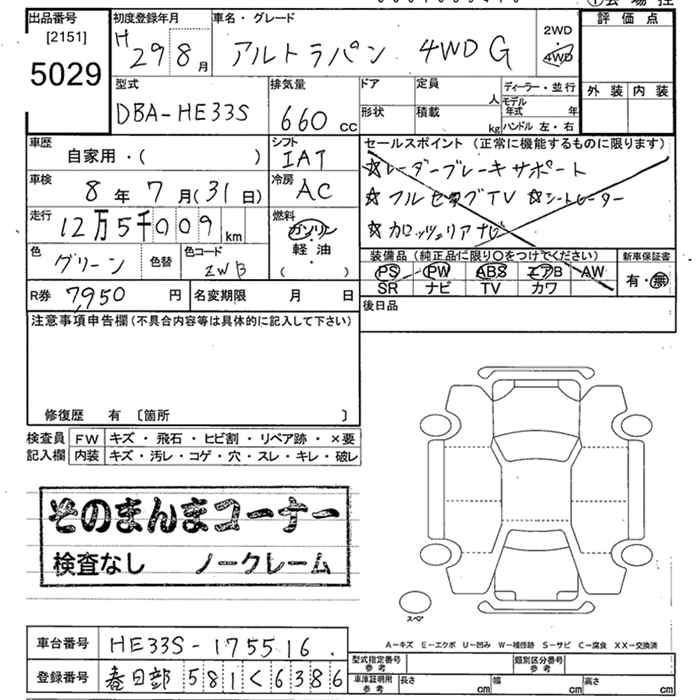 出品番号 [2151] 5029
初度登録年月 H 29 8月
車名・グレード アルトラパン 4WD G
2WD 4WD
評価点
外装 内装
型式 DBA-HE33S
排気量 660 cc
ドア 形状
定員 人
積載 kg
ディーラー・並行
モデル年式 年
ハンドル 左・右
車歴 自家用・( )
シフト IAT
車検 8年 7月(31日)
冷房 AC
走行 12万5千009 km
燃料 ガソリン 軽油 ( )
色 グリーン 色替
色コード ZWB
R券 7,950 円
名変期限 月 日
セールスポイント (正常に機能するものに限ります)
☆レーダーブレーキサポート
☆フルセグTV ☆シートヒーター
☆カロッツェリアナビ
装備品 (純正品に限り〇をつけてください)
PS PW ABS エアB AW
SR ナビ TV カワ
新車保証書
有・無
後日品
注意事項申告欄 (不具合内容等は具体的に記入して下さい)
修復歴 有 〔箇所 〕
検査員記入欄
FW キズ・飛石・ヒビ割・リペア跡・×要
内装 キズ・汚レ・コゲ・穴・スレ・キレ・破レ
そのまんまコーナー
検査なし ノークレーム
スペア
A－キズ E－エクボ U－凹み W－補修跡 S－サビ C－腐食 XX－交換済
車台番号 HE33S-175516
登録番号 春日部 581く6386
型式指定番号 参考
類別区分番号 参考
車庫証明用 参考
長さ cm 幅 cm 高さ cm